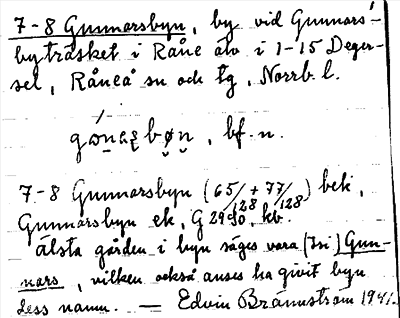 7-8 Gunnarsbyn, by vid Gunnars-
byträsket i Råne älv i 1-15 Deger-
sel, Råneå sn och tg, Norrb. l.
bf. n.
7-8 Gunnarsbyn (65/128 + 77/128) bek.,
Gunnarsbyn ek. G 2930, kb.
älsta gården i byn säges vara (7si) Gun-
nars, vilken också anses ha givit byn
dess namn. — Edvin Brännström 1941.